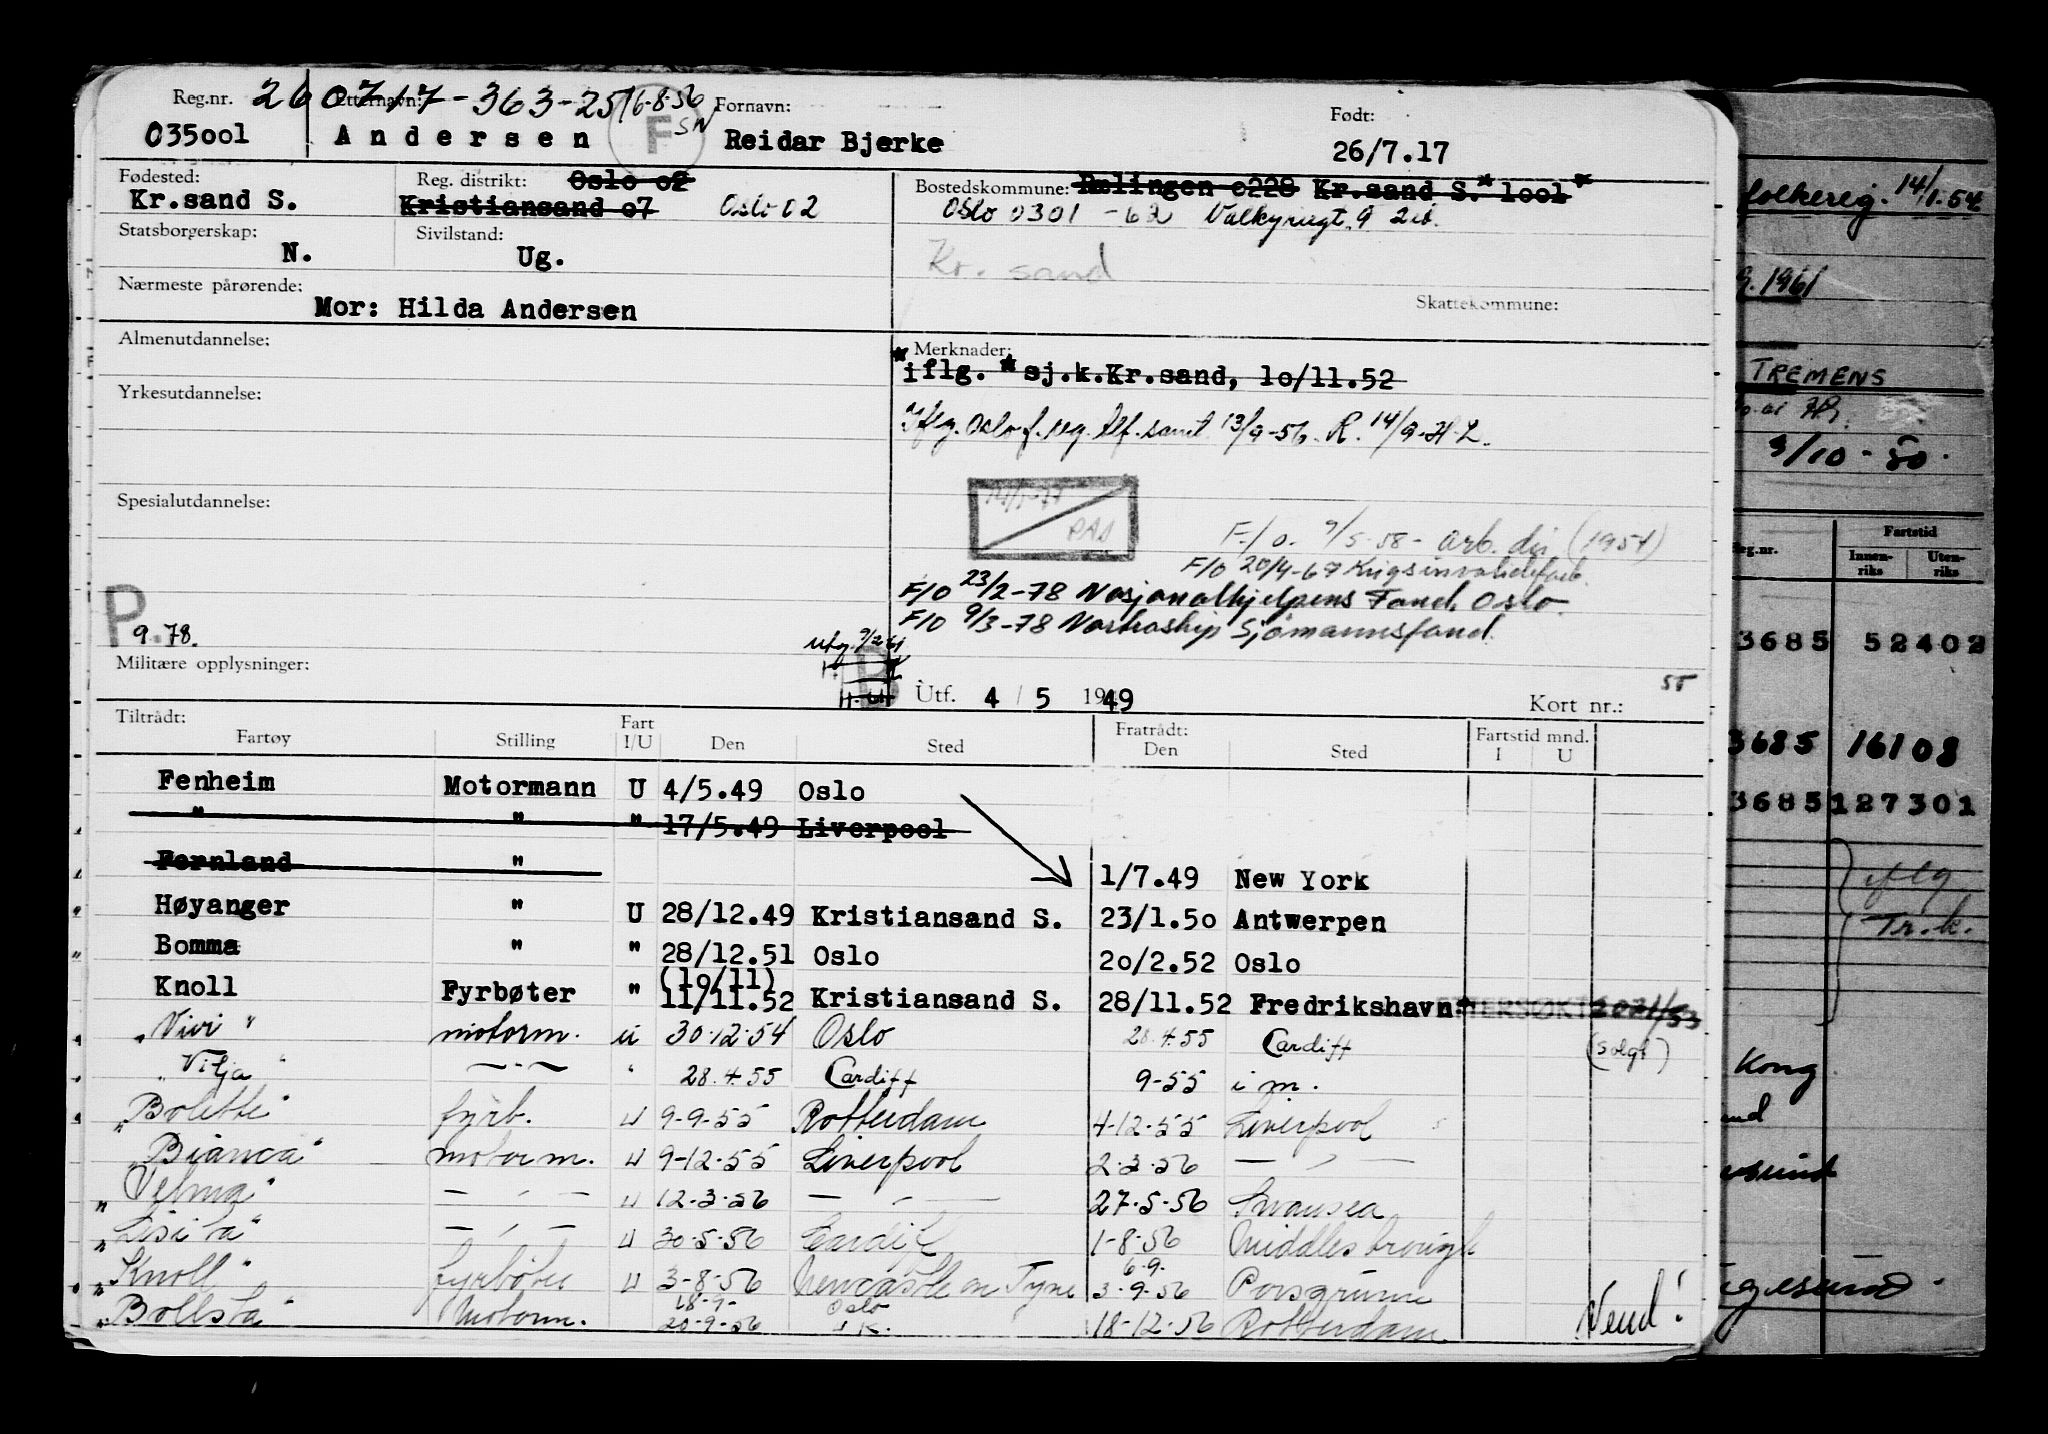 Reg.nr. 260717-363-25 16-8-56 Etternavn: Fornavn: Født:
035001 Andersen F SN Reidar Bjerke 26/7.17
Fødested: Reg. distrikt: Oslo 02 Bostedskommune: Rælingen 0228 Kr.sand S.* 1001*
Kr.sand S. Kristiansand 07 Oslo 02 Oslo 0301 -62 Valkyriegt. 9
Statsborgerskap: N. Sivilstand: Ug.
Kr. sand
Nærmeste pårørende: Skattekommune:
Mor: Hilda Andersen
Almenutdannelse: Merknader:
*iflg. *sj.k.Kr.sand, 10/11.52
Yrkesutdannelse:
Iflg. Oslo f.reg. tlf.samt. 13/9-56. R. 14/9-H.L.
Spesialutdannelse:
PAS
F/O. 9/5-58- arb. dir (1954)
F/O 20/4-67 Krigsinvalideforb.
F/O 23/2-78 Nasjonalhjelpens Fond, Oslo.
F/O 9/3-78 Nortraship Sjømannsfond.
P. 9.78.
Militære opplysninger: B Utf. 4 / 5 1949 Kort nr.:
Tiltrådt: Fratrådt: Fartstid mnd.
Fartøy Stilling Fart I/U Den Sted Den Sted I U
Fenheim Motormann U 4/5.49 Oslo
" " " 17/5.49 Liverpool
Fernland " 1/7.49 New York
Høyanger " U 28/12.49 Kristiansand S. 23/1.50 Antwerpen
Bomma " " 28/12.51 Oslo 20/2.52 Oslo
(10/11)
Knoll Fyrbøter " 11/11.52 Kristiansand S. 28/11.52 Fredrikshavn. ETTERSØKT
"Vivi" motorm. u 30.12.54 Oslo 28.4.55 Cardiff (solgt)
"Vilja" — " — " 28.4.55 Cardiff 9-55 i m.
"Bolette" fyrb. u 9-9-55 Rotterdam 4-12-55 Liverpool
"Bianca" motorm. u 9-12-55 Liverpool 2-3-56 — " —
"Velma" — " — u 12-3-56 — " — 27-5-56 Swansea
"Lisita" — " — u 30-5-56 Cardiff 1-8-56 Middlesbrough
6.9.
"Knoll" fyrbøter u 3-8-56 Newcastle on Tyne 3-9-56 Porsgrunn
18-9- Oslo
"Bollsta" Motorm. 20-9-56 18-12-56 Rotterdam
Vend!
folkereg. 14/1.54
9.1961
TREMENS
3/10 - 80.
Reg.nr. Fartstid
Innenriks Utenriks
3685 52402
3685 16108
3685 127301
iflg
Tr.k.
Kong